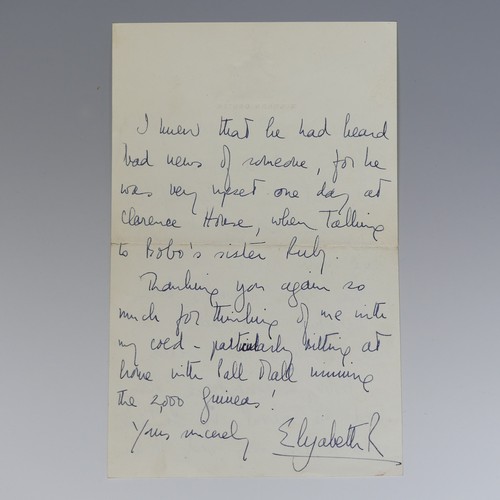 I knew that he had heard
bad news of someone, for he
was very upset one day at
Clarence House, when talking
to Bobo's sister Ruby.
Thanking you again so
much for thinking of me with
my cold – particularly sitting at
home with Pall Mall winning
the 2,000 Guineas!
Yours sincerely Elizabeth R